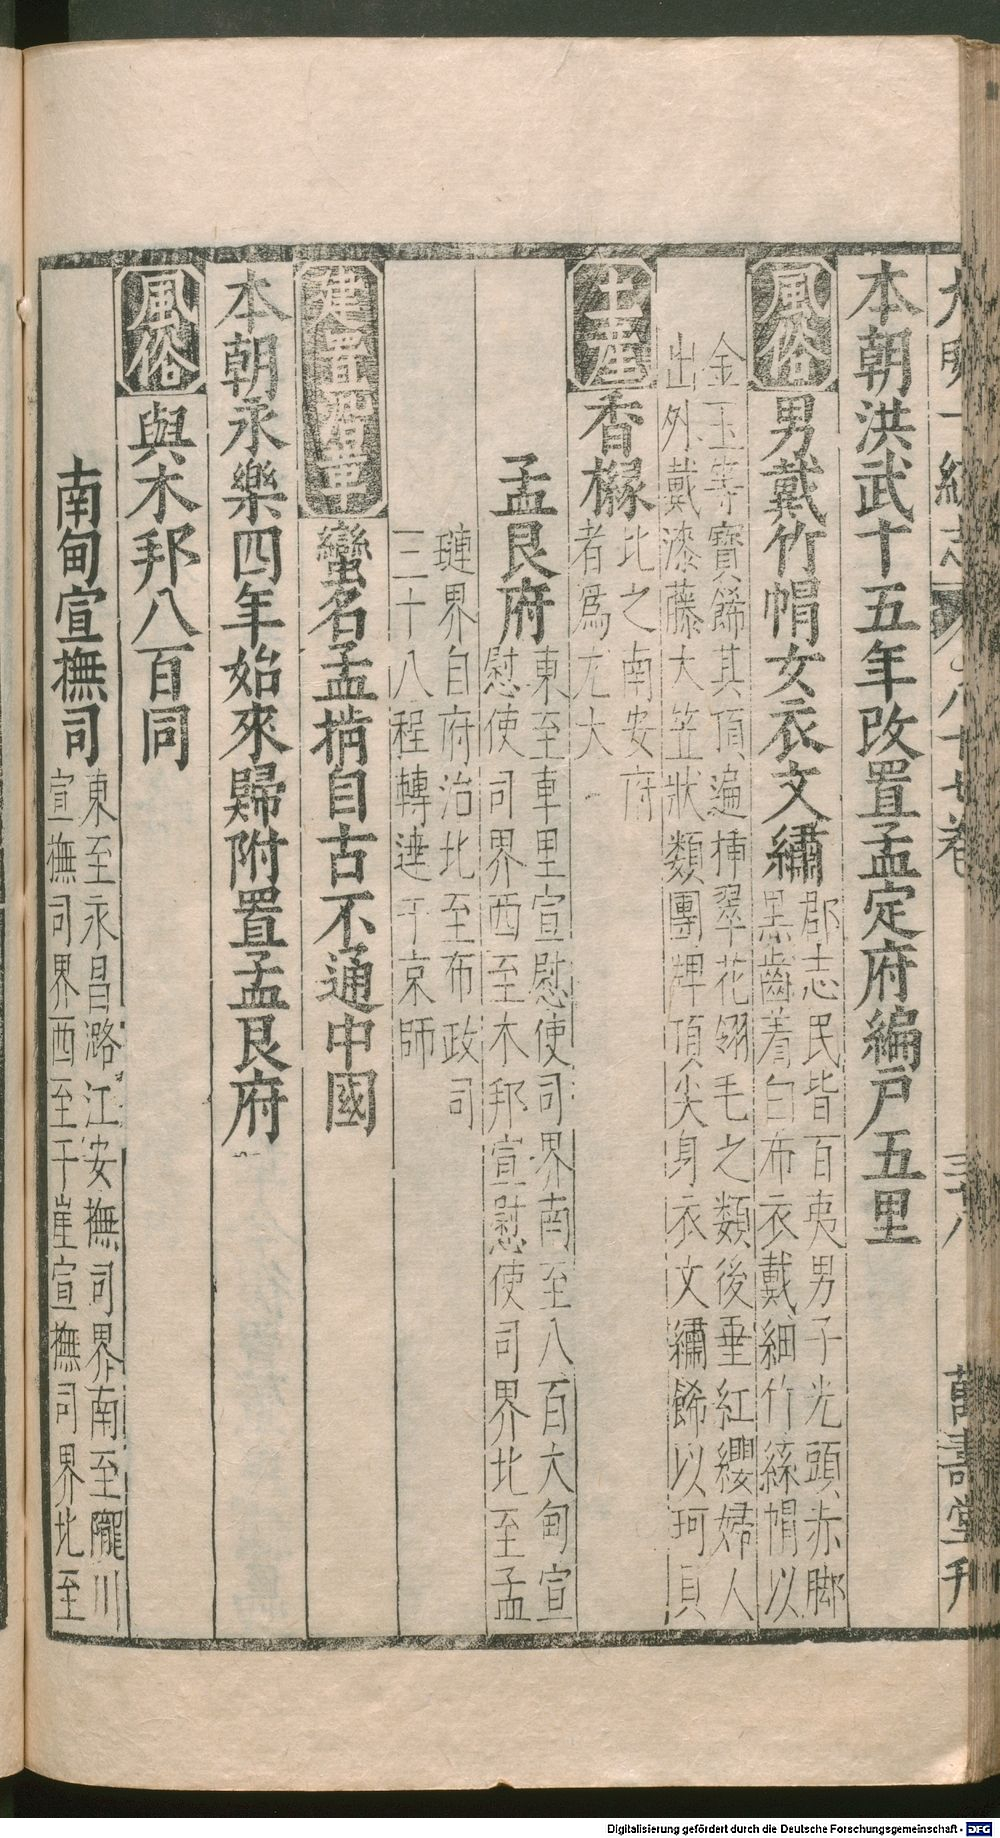 大明一統志 八十七卷 三十八 萬壽堂刋
本朝洪武十五年改置孟定府編戸五里
風俗 男戴竹帽女衣文繡
郡志民皆百夷男子光頭赤脚
黒齒着白布衣戴細竹絲帽以
金玉等寳餙其頂遍揷翠花翎毛之類後垂紅纓婦人
出外戴漆藤大笠狀類團牌頂尖身衣文繡餙以珂貝
土産 香橼
比之南安府
者爲尤大
孟艮府
東至車里宣慰使司界南至八百大甸宣
慰使司界西至木邦宣慰使司界北至孟
璉界自府治北至布政司
三十八程轉達于京師
建置沿革 蠻名孟掯自古不通中國
本朝永樂四年始來歸附置孟艮府
風俗 與木邦八百同
南甸宣撫司
東至永昌潞江安撫司界南至隴川
宣撫司界西至干崖宣撫司界北至
Digitalisierung gefördert durch die Deutsche Forschungsgemeinschaft - DFG